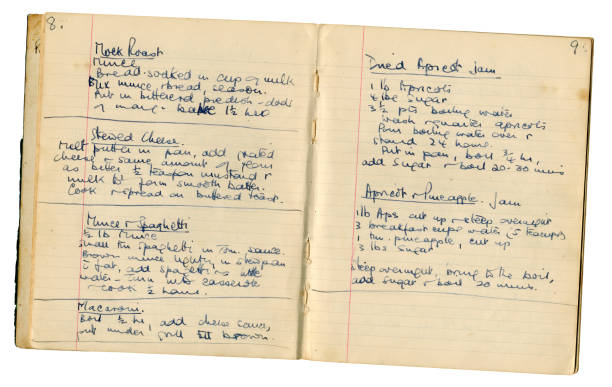 8.
Mock Roast
Mince
Bread soaked in cup of milk
Mix mince, bread, season.
Put in buttered piedish - dods
of marg - bake 1½ hrs
Stewed Cheese.
Melt butter in pan, add grated
cheese & same amount of
as butter ½ teaspoon mustard &
milk to form smooth batter.
Cook & spread on buttered toast.
Mince & Spaghetti
½ lb Mince
Small tin spaghetti in Tom. sauce.
Brown mince lightly in stewpan
fat, add spaghetti & little
water - turn into casserole
- cook ½ hour.
Macaroni.
Boil ½ hr, add cheese sauce,
put under grill till brown.
9.
Dried Apricot Jam
1 lb Apricots
4 lbs sugar
3½ pts boiling water
Wash & quarter apricots
Pour boiling water over &
stand 24 hours.
Put in pan, boil ¾ hr,
add sugar & boil 20-30 mins
Apricot & Pineapple Jam
1 lb Aps cut up & steep overnight
3 breakfast cups water (5 teacups)
1 tin pineapple, cut up
3 lbs sugar
Steep overnight, bring to the boil,
add sugar & boil 20 mins.